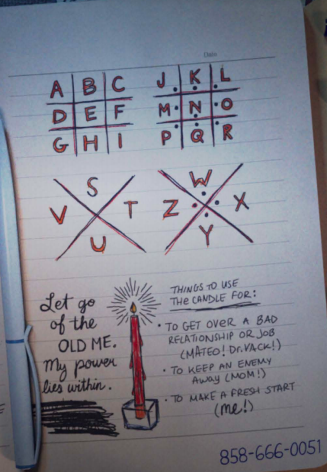 Date
A B C J K L
D E F M N O
G H I P Q R
S W
V T Z X
U Y
Let go
of the
OLD ME.
My power
lies within.
THINGS TO USE
THE CANDLE FOR:
• TO GET OVER A BAD
RELATIONSHIP OR JOB
(MATEO! Dr. VACK!)
• TO KEEP AN ENEMY
AWAY (MOM!)
• TO MAKE A FRESH START
(me!)
858-666-0051